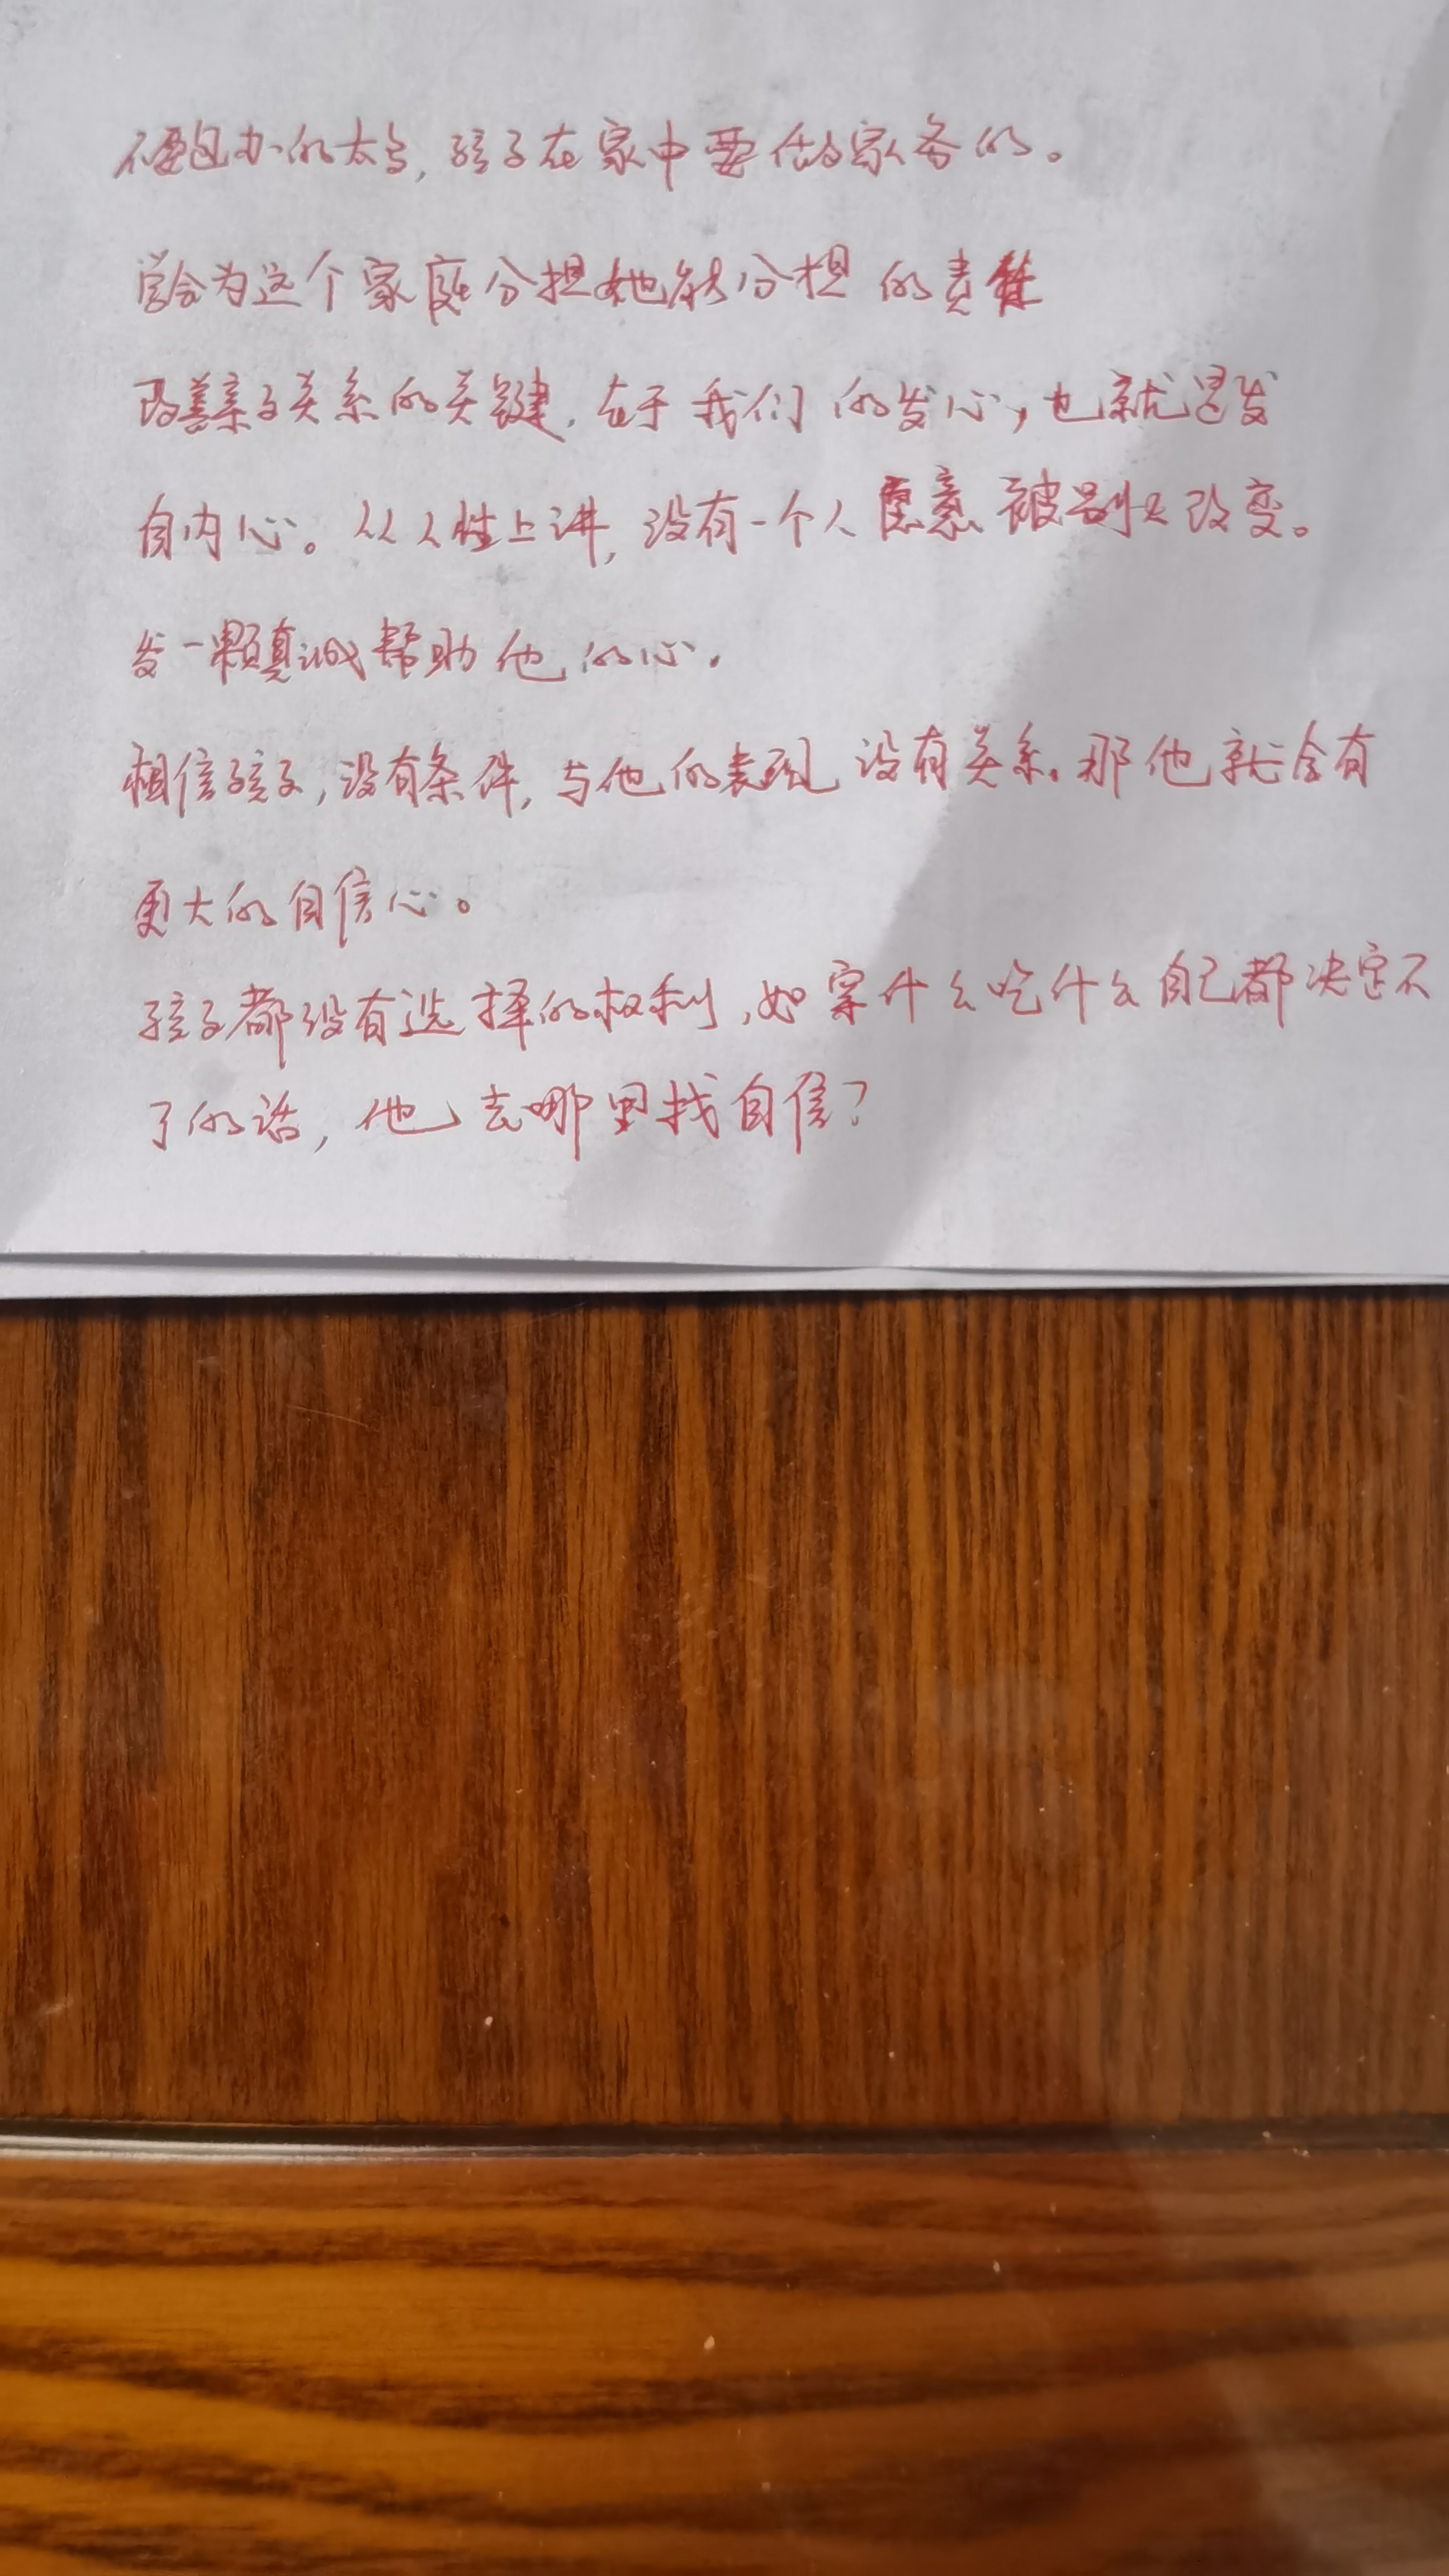 不要包办的太多,孩子在家中要做家务的。
学会为这个家庭分担她能分担的责任
改善亲子关系的关键,在于我们的发心,也就是发
自内心。从人性上讲,没有一个人愿意被别人改变。
发一颗真诚帮助他的心.
相信孩子,没有条件,与他的表现没有关系.那他就会有
更大的自信心。
孩子都没有选择的权利,如穿什么吃什么自己都决定不
了的话,他去哪里找自信?